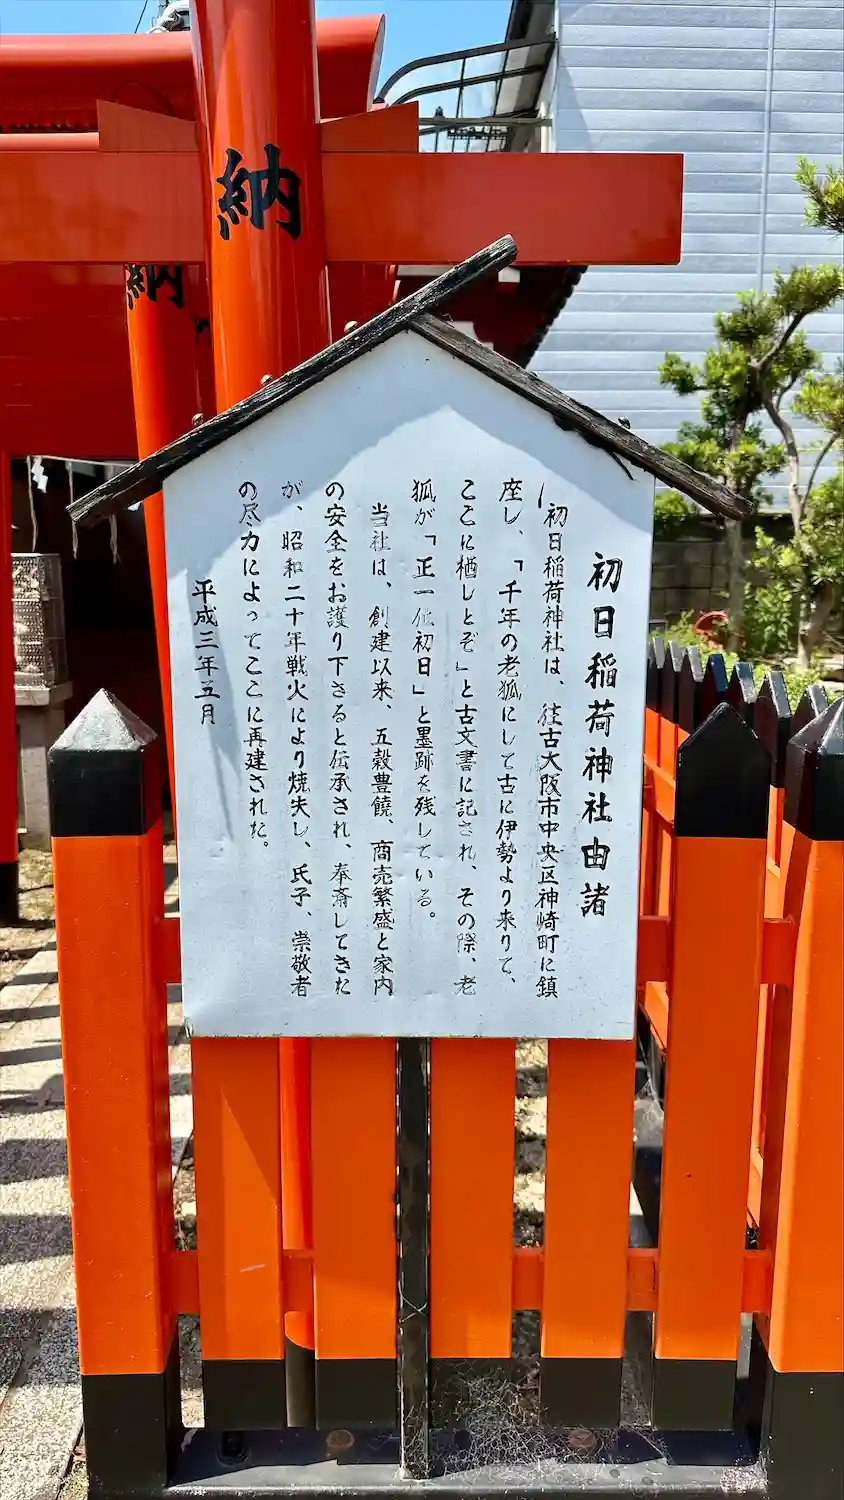 納
納
初日稲荷神社由諸
初日稲荷神社は、往古大阪市中央区神崎町に鎮
座し、「千年の老狐にして古に伊勢より来りて、
ここに栖しとぞ」と古文書に記され、その際、老
狐が「正一位初日」と墨跡を残している。
当社は、創建以来、五穀豊饒、商売繁盛と家内
の安全をお護り下さると伝承され、奉斎してきた
が、昭和二十年戦火により焼失し、氏子、崇敬者
の尽力によってここに再建された。
平成三年五月